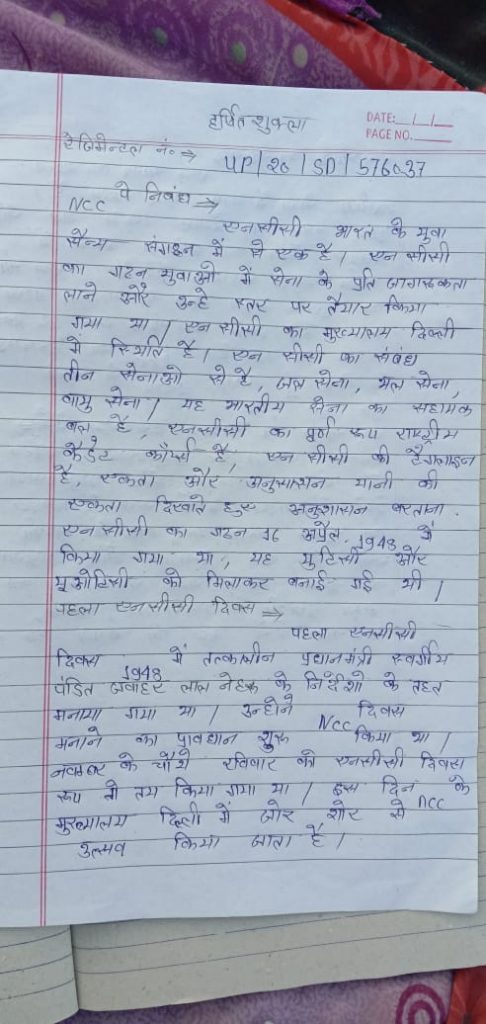 हर्षित शुक्ला
DATE: _/_/_
PAGE NO.
रेजिमेन्टल नं० → UP/20/SD/576037
NCC पे निबंध →
एनसीसी भारत के युवा
सैन्य संगठन में से एक है। एन सीसी
का गठन युवाओ में सेना के प्रति जागरूकता
लाने और उन्हे स्तर पर तैयार किया
गया था। एन सीसी का मुख्यालय दिल्ली
में स्थिति है। एन सीसी का संबंध
तीन सेनाओ से है, जल सेना, थल सेना,
वायु सेना। यह भारतीय सेना का सहायक
बल है, एनसीसी का पूर्ण रूप राष्ट्रीय
कैडेट कॉर्प्स है, एन सीसी की टैगलाइन
है, एकता और अनुसाशन यानी की
एकता दिखाते हुए अनुशासन बरताना.
एन सीसी का गठन 16 अप्रैल, 1948 में
किया गया था, यह युटिसी और
यूओटिसी को मिलाकर बनाई गई थी।
पहला एनसीसी दिवस ⇒
पहला एनसीसी
दिवस 1948 में तत्कालीन प्रधानमंत्री स्वर्गीय
पंडित जवाहर लाल नेहरू के निर्देशो के तहत
मनाया गया था। उन्होने NCC दिवस
मनाने का प्रावधान शुरू किया था।
नवम्बर के चौथे रविवार को एनसीसी दिवस
रूप में तय किया गया था। इस दिन NCC के
मुख्यालय दिल्ली में जोर शोर से
उत्सव किया जाता है।